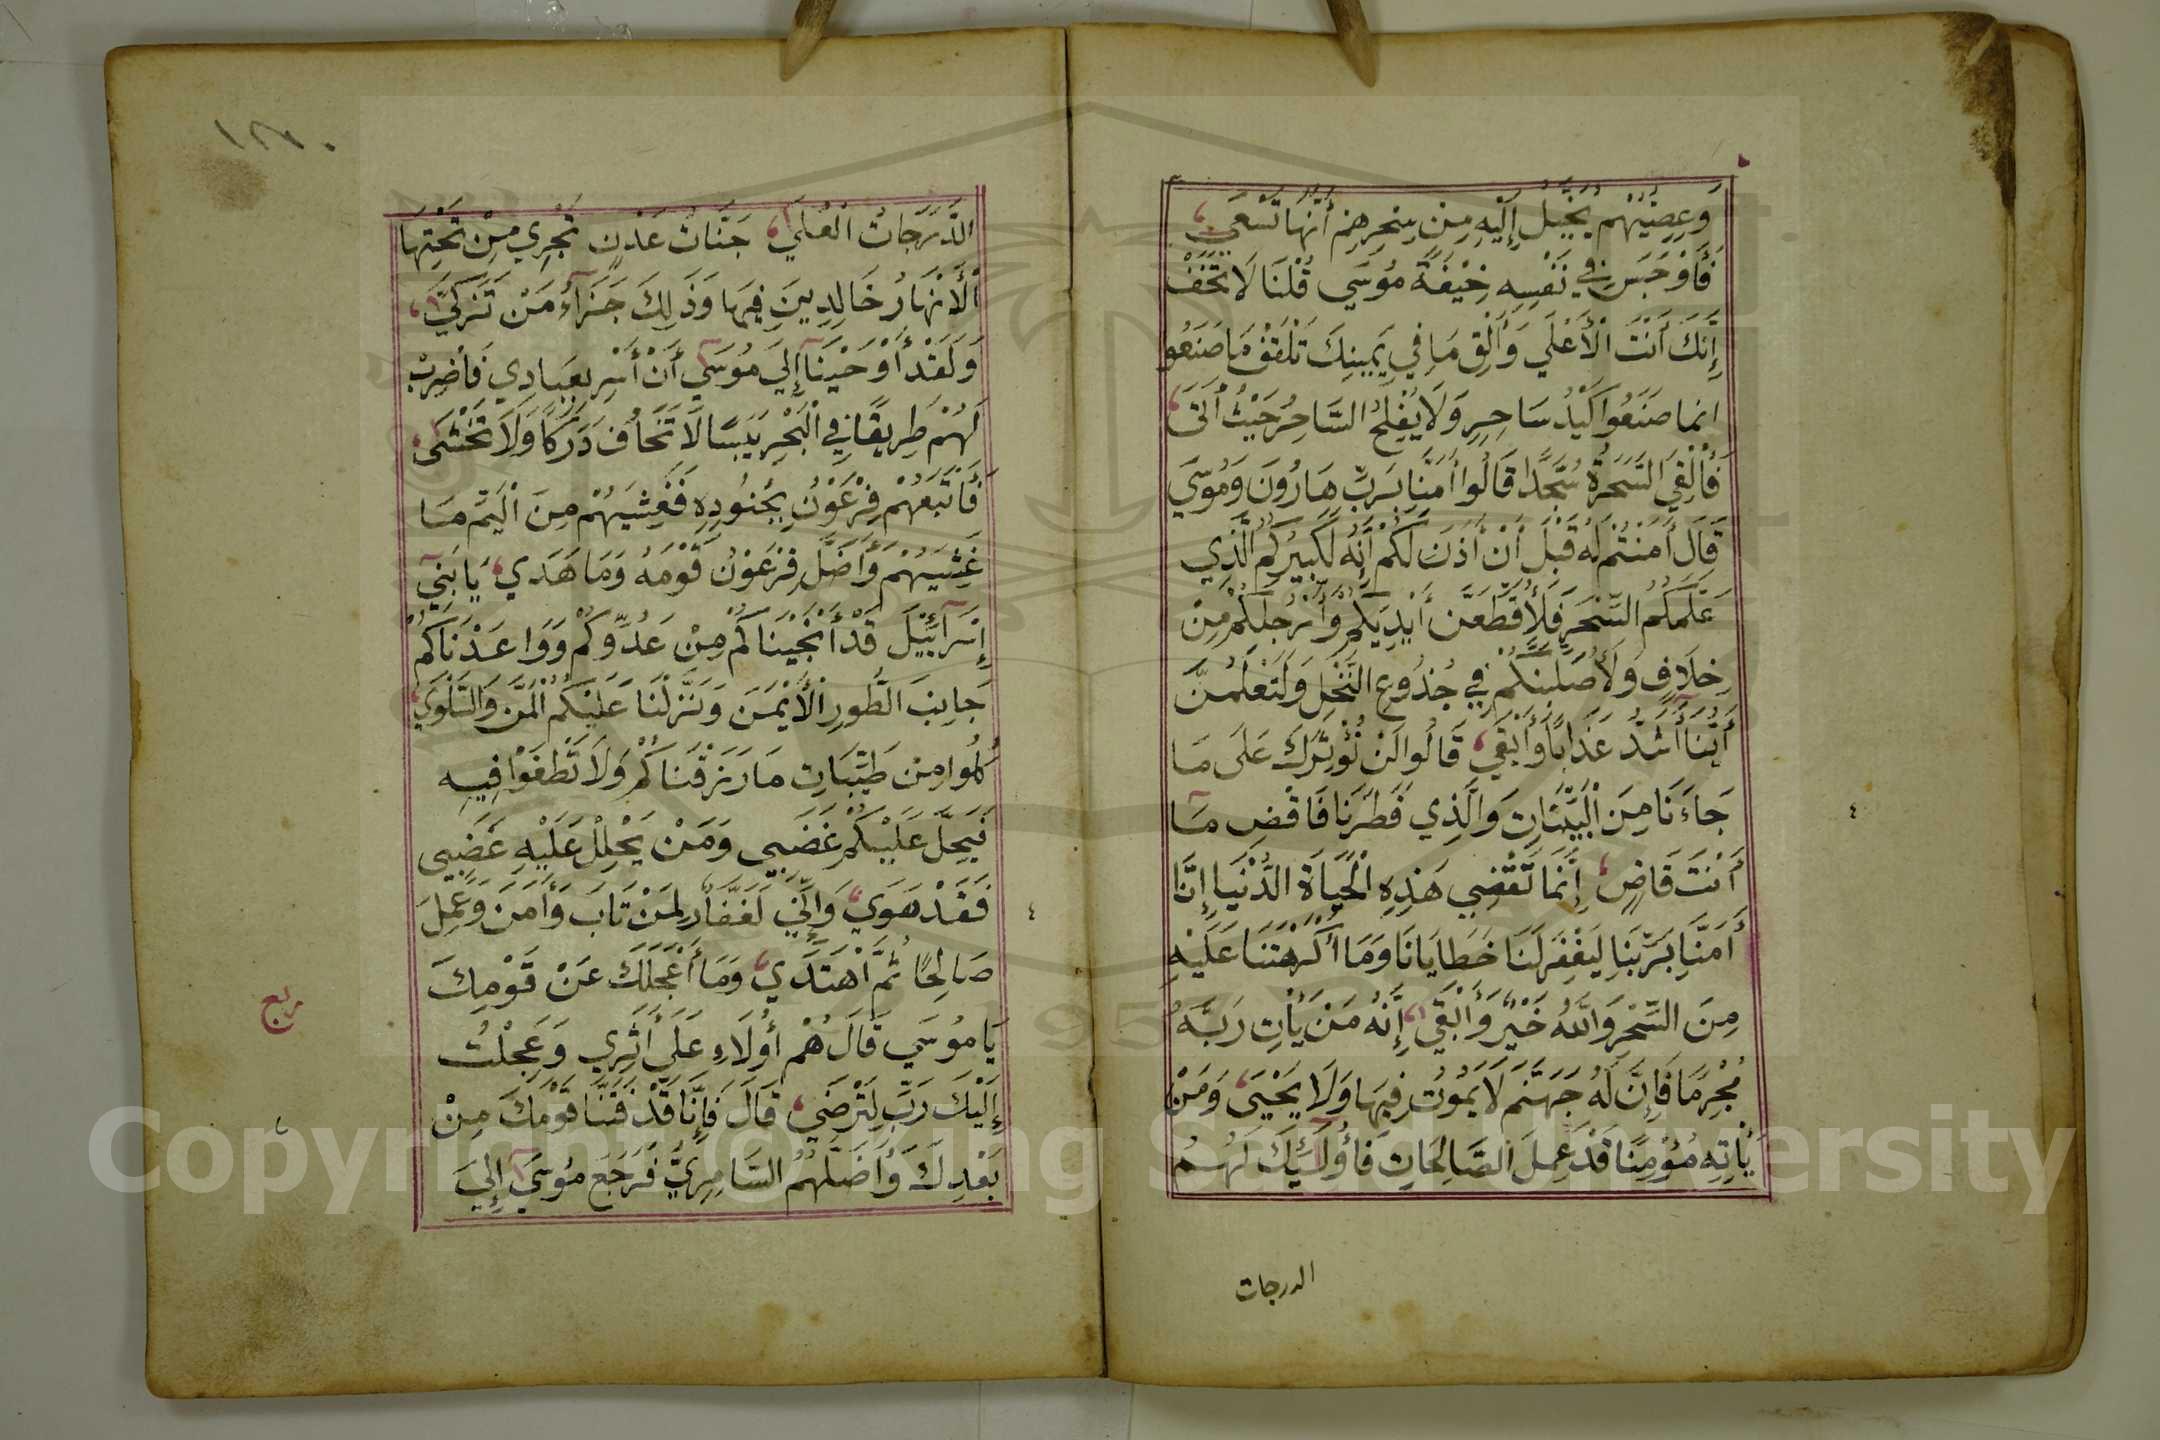 وَعِصِيُّهُمْ يُخَيَّلُ إِلَيْهِ مِنْ سِحْرِهِمْ أَنَّهَا تَسْعَي
فَأَوْجَسَ فِي نَفْسِهِ خِيْفَةً مُوسَي قُلْنَا لَا تَخَفْ
إِنَّكَ أَنْتَ الْأَعْلَي وَأَلْقِ مَا فِي يَمِينِكَ تَلْقَفْ مَا صَنَعُو
انما صَنَعُوا كَيْدُ سَاحِرٍ وَلَا يُفْلِحُ السَّاحِرُ حَيْثُ أَتَى
فَأُلْقِيَ السَّحَرَةُ سُجَّدًا قَالُوا أَمَنَّا بِرَبِّ هَارُونَ وَمُوسَي
قَالَ أَمَنْتُمْ لَهُ قَبْلَ أَنْ أَذَنَ لَكُمْ إِنَّهُ لَكَبِيرُكُمُ الَّذِي
عَلَّمَكُمُ السِّحْرَ فَلَأُقَطِّعَنَّ أَيْدِيَكُمْ وَأَرْجُلَكُمْ مِنْ
خِلَافٍ وَلَأُصَلِّبَنَّكُمْ فِي جُذُوعِ النَّخْلِ وَلَتَعْلَمُنَّ
أَيُّنَا أَشَدُّ عَذَابًا وَأَبْقَي قَالُوا لَنْ نُؤْثِرَكَ عَلَى مَا
جَاءَنَا مِنَ الْبَيِّنَاتِ وَالَّذِي فَطَرَنَا فَاقْضِ مَآ
أَنْتَ قَاضٍ إِنَّمَا تَقْضِي هَذِهِ الْحَيَاةَ الدُّنْيَا إِنَّا
أَمَنَّا بِرَبِّنَا لِيَغْفِرَ لَنَا خَطَايَانَا وَمَا أَكْرَهْتَنَا عَلَيْهِ
مِنَ السِّحْرِ وَاللَّهُ خَيْرٌ وَأَبْقَي إِنَّهُ مَنْ يَأْتِ رَبَّهُ
مُجْرِمًا فَإِنَّ لَهُ جَهَنَّمَ لَا يَمُوتُ فِيهَا وَلَا يَحْيَى وَمَنْ
يَأْتِهِ مُؤْمِنًا قَدْ عَمِلَ الصَّالِحَاتِ فَأُولَئِكَ لَهُمُ
الدرجات
٤
١٢٠
الدَّرَجَاتُ الْعُلَي جَنَّاتُ عَدْنٍ تَجْرِي مِنْ تَحْتِهَا
الْأَنْهَارُ خَالِدِينَ فِيهَا وَذَلِكَ جَزَآءُ مَنْ تَزَكَّي
وَلَقَدْ أَوْحَيْنَآ إِلَيَ مُوسَي أَنْ أَسْرِ بِعِبَادِي فَاضْرِبْ
لَهُمْ طَرِيقًا فِي الْبَحْرِ يَبَسًا لَا تَخَافُ دَرَكًا وَلَا تَخْشَى
فَأَتْبَعَهُمْ فِرْعَوْنُ بِجُنُودِهِ فَغَشِيَهُمْ مِنَ الْيَمِّ مَا
غَشِيَهُمْ وَأَضَلَّ فِرْعَوْنُ قَوْمَهُ وَمَا هَدَي يَا بَنِي
إِسْرَآئِيْلَ قَدْ أَنْجَيْنَاكُمْ مِنْ عَدُوِّكُمْ وَوَاعَدْنَاكُمْ
جَانِبَ الطُّورِ الْأَيْمَنَ وَنَزَّلْنَا عَلَيْكُمُ الْمَنَّ وَالسَّلْوَي
كُلُوا مِنْ طَيِّبَاتِ مَا رَزَقْنَاكُمْ وَلَا تَطْغَوْا فِيهِ
فَيَحِلَّ عَلَيْكُمْ غَضَبِي وَمَنْ يَحْلِلْ عَلَيْهِ غَضَبِي
فَقَدْ هَوَي وَإِنِّي لَغَفَّارٌ لِمَنْ تَابَ وَأَمَنَ وَعَمِلَ
صَالِحًا ثُمَّ اهْتَدَي وَمَا أَعْجَلَكَ عَنْ قَوْمِكَ
يَا مُوسَي قَالَ هُمْ أُولَاءِ عَلَى أَثَرِي وَعَجِلْتُ
إِلَيْكَ رَبِّ لِتَرْضَي قَالَ فَإِنَّا قَدْ فَتَنَّا قَوْمَكَ مِنْ
بَعْدِكَ وَأَضَلَّهُمُ السَّامِرِيُّ فَرَجَعَ مُوسَي إِلَيَ
٤
ربع
Copyright © King Saud University